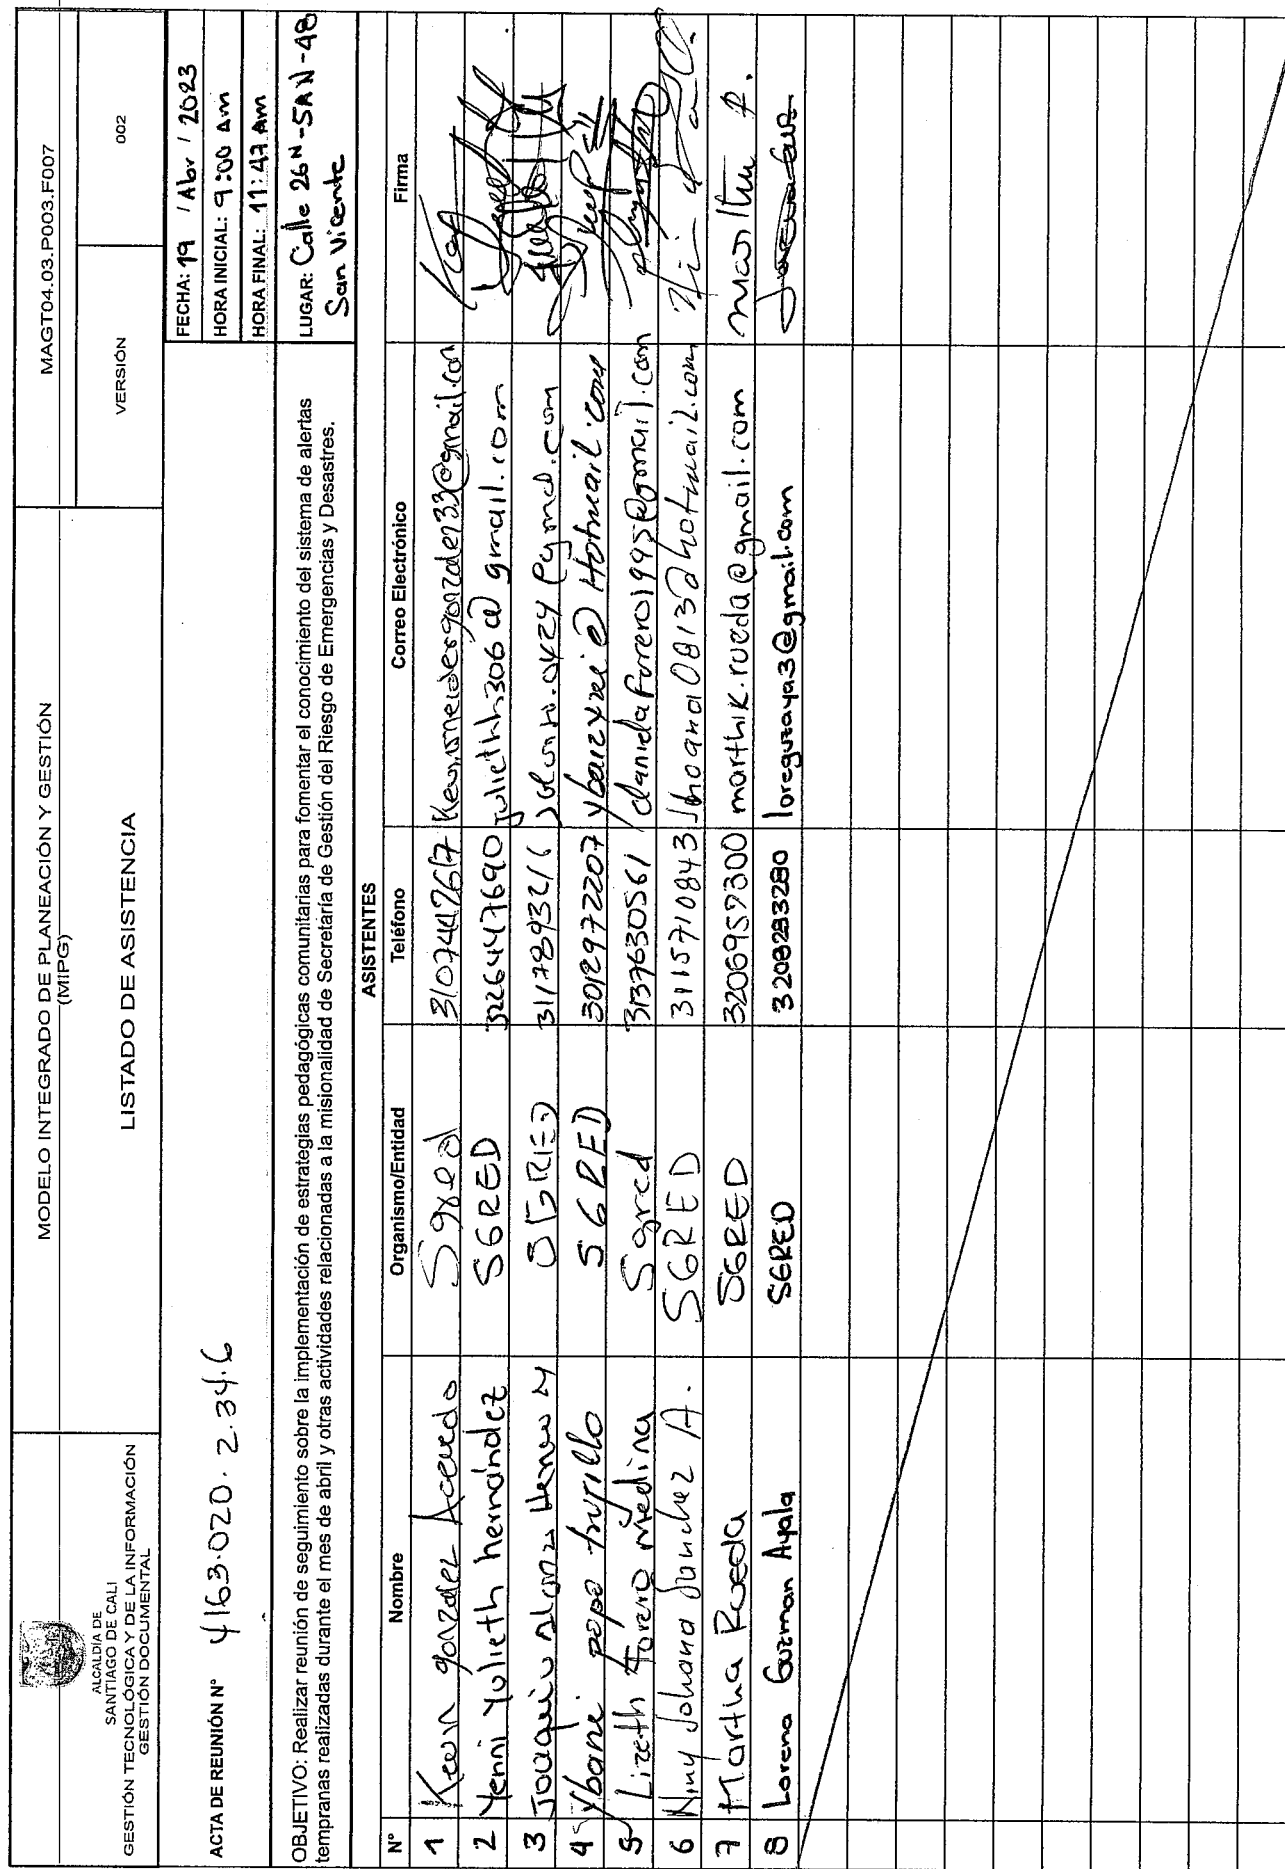 ALCALDÍA DE
SANTIAGO DE CALI
GESTIÓN TECNOLÓGICA Y DE LA INFORMACIÓN
GESTIÓN DOCUMENTAL
MODELO INTEGRADO DE PLANEACIÓN Y GESTIÓN
(MIPG)
LISTADO DE ASISTENCIA
MAGT04.03.P003.F007
VERSIÓN 002
ACTA DE REUNIÓN Nº 4163.020.2.34.6
FECHA: 19 / Abr / 2023
HORA INICIAL: 9:00 am
HORA FINAL: 11:47 am
OBJETIVO: Realizar reunión de seguimiento sobre la implementación de estrategias pedagógicas comunitarias para fomentar el conocimiento del sistema de alertas
tempranas realizadas durante el mes de abril y otras actividades relacionadas a la misionalidad de Secretaría de Gestión del Riesgo de Emergencias y Desastres.
LUGAR: Calle 26N-5AN-48
San Vicente
ASISTENTES
Nº Nombre Organismo/Entidad Teléfono Correo Electrónico Firma
1 Kevin gonzalez Acevedo Sgred
2 Yenni Yulieth hernández SGRED 3226447690 yuliethh306@gmail.com
3 Joaquin SGRED 3117893216
4 Ybane pepe trujillo SGRED 3012972207
5 Lizeth forero medina Sgred 3137630561 danielaforero1995@gmail.com
6 Niny Johana Sanchez A. SGRED 3115710843 Jhoana0813@hotmail.com
7 Martha Rueda SGRED 3206957300 marthik.rueda@gmail.com Martha R.
8 Lorena Guzman Ayala SGRED 3208293280 loreguzaya3@gmail.com